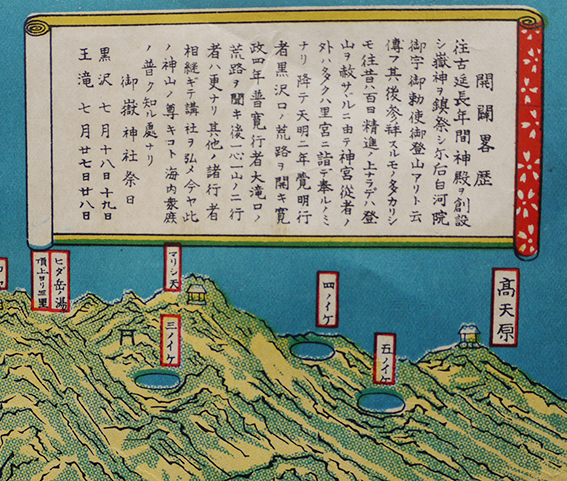 開闢畧歴
往古延長年間神殿ヲ創設
シ嶽神ヲ鎮祭シ尓后白河院
御宇御勅使御登山アリト云
傳フ其後参拜スルモノ多カリシ
モ往昔ハ百日精進ノ上ナラデハ登
山ヲ赦サバルニ由テ神宮従者ノ
外ハタクハ里宮ニ詣デ奉ルノミ
ナリ降テ天明二年覺明行
者黒沢口ノ荒路ヲ開キ寛
政四年普寛行者大滝口ノ
荒路ヲ開キ後一心一山ノ二行
者ハ更ナリ其他ノ諸行者
相継ギテ講社ヲ弘メ今ヤ此
ノ神山ノ尊キコト海内衆庶
ノ普ク知ル處ナリ
御嶽神社祭日
黒沢 七月十八日十九日
王滝 七月廿七日廿八日
高天原
五ノイケ
四ノイケ
マリシ天
三ノイケ
ヒダ岳ノ湯
頂上ヨリ三里